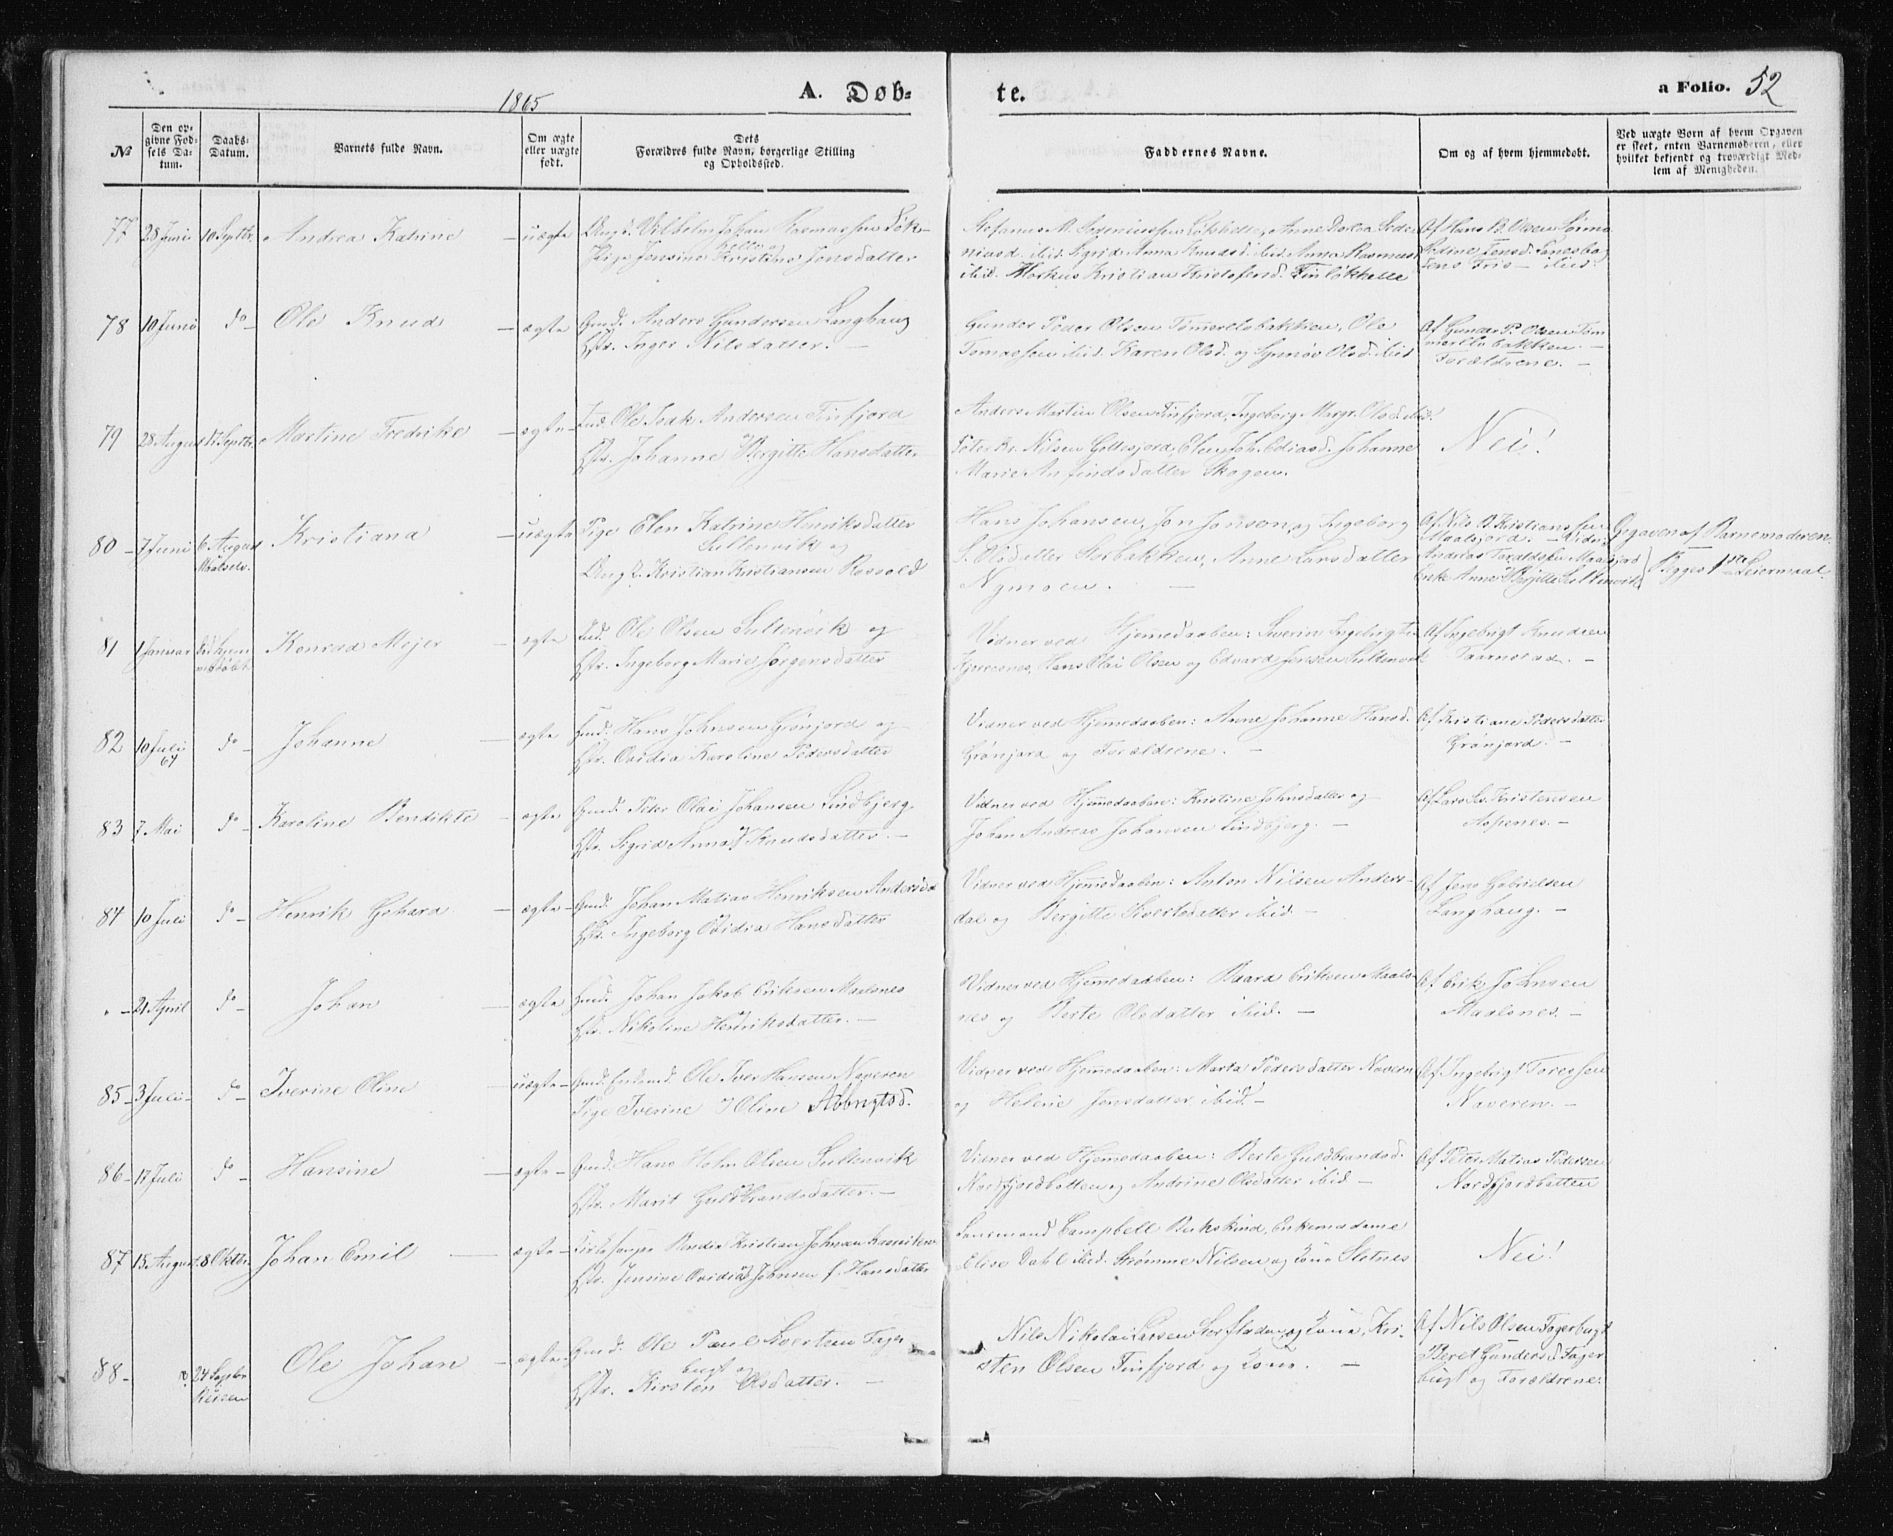 1865
A. Døb-
te.
a Folio. 52
№
Den op-
givne Fød-
sels Da-
tum.
Daabs-
Datum.
Barnets fulde Navn.
Om ægte
eller uægte
født.
Dets
Forældres fulde Navn, borgerlige Stilling
og Opholdssted.
Faddernes Navne.
Om og af hvem hjemmedøbt.
Ved uægte Børn af hvem Opgaven
er skeet, enten Barnemoderen, eller
hvilket bekjendt og troværdigt Med-
lem af Menigheden.
77 28 Juni 10 Septbr. Andrea Katrine – uægte Ungk. Vilhelm Johan Rasmussen Løk-
kelle og
Pige Jensine Kristine Jensdatter
Anne
ibid. Sigrid Anna Knudsd. ibid. Anna
ibid. Markus Kristian Kristofersd. Finløkkelle
Af Hans B. Olsen
ibid.
78 10 Juni do – Ole Knud – ægte Gmd. Anders Gundersen Langhaug
Hstr. Inger Nilsdatter. –
Gunder Peder Olsen Tømmerelvbakken, Ole
Tomassen ibid. Karen Olsd. og Synnøv Olsd. ibid
Af Gunder P. Olsen Tøm
merelvbakken. –
Forældrene. –
79 28 August 17 Septbr. Martine Fredrike – ægte Ind. Ole Isak Andersen Finfjord
og
Hstr. Johanne Bergitte Hansdatter
Anders Martin Olsen Finfjord, Ingeborg Margr. Olsd. ibid.
Peter Kr. Nilsen Johanne
Marie Anfindsdatter Skogen.
Nei!
80 – 7 Juni 6 August
Maalselv.
Kristiana – uægte Pige Elen Katrine Henriksdatter
Sultenvik og
Ungk. Kristian Kristiansen Rossvold
Hans Johansen, Jon Jonson, og Ingeborg
Anne Larsdatter
Nymoen. –
Af Nils B. Kristiansen
Maalsjord. – Vidner:
Andreas Taraldsen Maalsjord
Enke Anne Bergitte Sultenvik
Opgaven af Barnemoderen.
Begges 1ste Leiermaal.
81 1 Januar Konrad Mejer – ægte Ind. Ole Olsen Sultenvik og
Hstr. Ingeborg Marie Jørgensdatter
Vidner ved Hjemedaaben: Siverin Ingebrigtsen
Hans Olai Olsen og Edvard Jensen Sultenvik
Af Ingebrigt Knudsen
Taarnstad. –
82 10 Juli
64
do – Johanne – ægte Gmd. Hans Johnsen Grønjord og
Hstr. Ovidia Karoline Pedersdatter
Vidner ved Hjemedaaben: Anne Johanne Hansd.
Grønjord og Forældrene. –
Af Kristiane Pedersdatter
Grønjord. –
83 7 Mai do – Karoline Bendikte – ægte Gmd. Peter Olai Johansen Lindbjerg.
og
Hstr. Sigrid Anna Knudsdatter. –
Vidner ved Hjemedaaben: Kristine Johnsdatter og
Johan Andreas Johansen Lindbjerg. –
Af Lars Kristensen
Aspenes. –
84 10 Juli do – Henrik Gehard – ægte Gmd. Johan Matias Henriksen Andersdal
Hstr. Ingeborg Ovidia Hansdatter
Vidner ved Hjemedaaben: Anton Nilsen Anders-
dal og Bergitte Sivertsdatter ibid. –
Af Jens Gabrielsen
Langhaug. –
" – 21 April do – Johan – ægte Gmd. Johan Jakob Eriksen Maalsnes
Hstr. Nikoline Henriksdatter. –
Vidner ved Hjemedaaben: Baard Eriksen Maals-
nes og Berte Olsdatter ibid. –
Af Erik Johnsen
Maalsnes. –
85 – 3 Juli – do – Iverine Oline – uægte – Gmd. Enkemd. Ole Iver Hansen Naveren
Pige Iverine Oline
Vidner ved Hjemedaaben: Marta Pedersdatter Navern
og Helene Jensdatter ibid –
Af Ingebrigt Toressen
Naveren. –
86 – 17 Juli do – Hansine – ægte – Gmd. Hans Holm Olsen Sultenvik
Hstr. Marit Guldbrandsdatter. –
Vidner ved Hjemedaaben: Berte Guldbrandsd.
Nordfjordbotten og Andrine Olsdatter ibid –
Af Peter Matias Pedersen
Nordfjordbotten
87 15 August 8 Oktbr. Johan Emil – ægte – Kirkesanger Kristian Johnsen
Hstr. Jensine Ovidia Johnsen f. Hansdatter
Lensmand Campbell Enkemadame
Elise Dahl ibid. Strømme Nilsen og Kone Slotnes
Nei!
88 – ? 24 Septbr
Ole Johan – ægte – Gmd. Ole Paul Sivertsen Fager-
bugt og
Hstr. Kirsten Olsdatter. –
Nils Nikolai Larsen og Kone, Kri-
sten Olsen Finfjord og Kone. –
Af Nils Olsen Fagerbugt
Beret Gundersd. Fager
bugt og Forældrene.